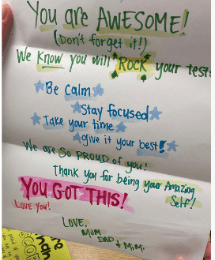 You are AWESOME!
(Don't forget it!)
We Know you will "Rock" your test!
Be Calm
Stay focused
Take your time
Give it your best!
We are SO PROUD of you!
Thank you for being your Amazing
Self!
YOU GOT THIS!
Love You!
LOVE,
MOM
DAD & Mimi